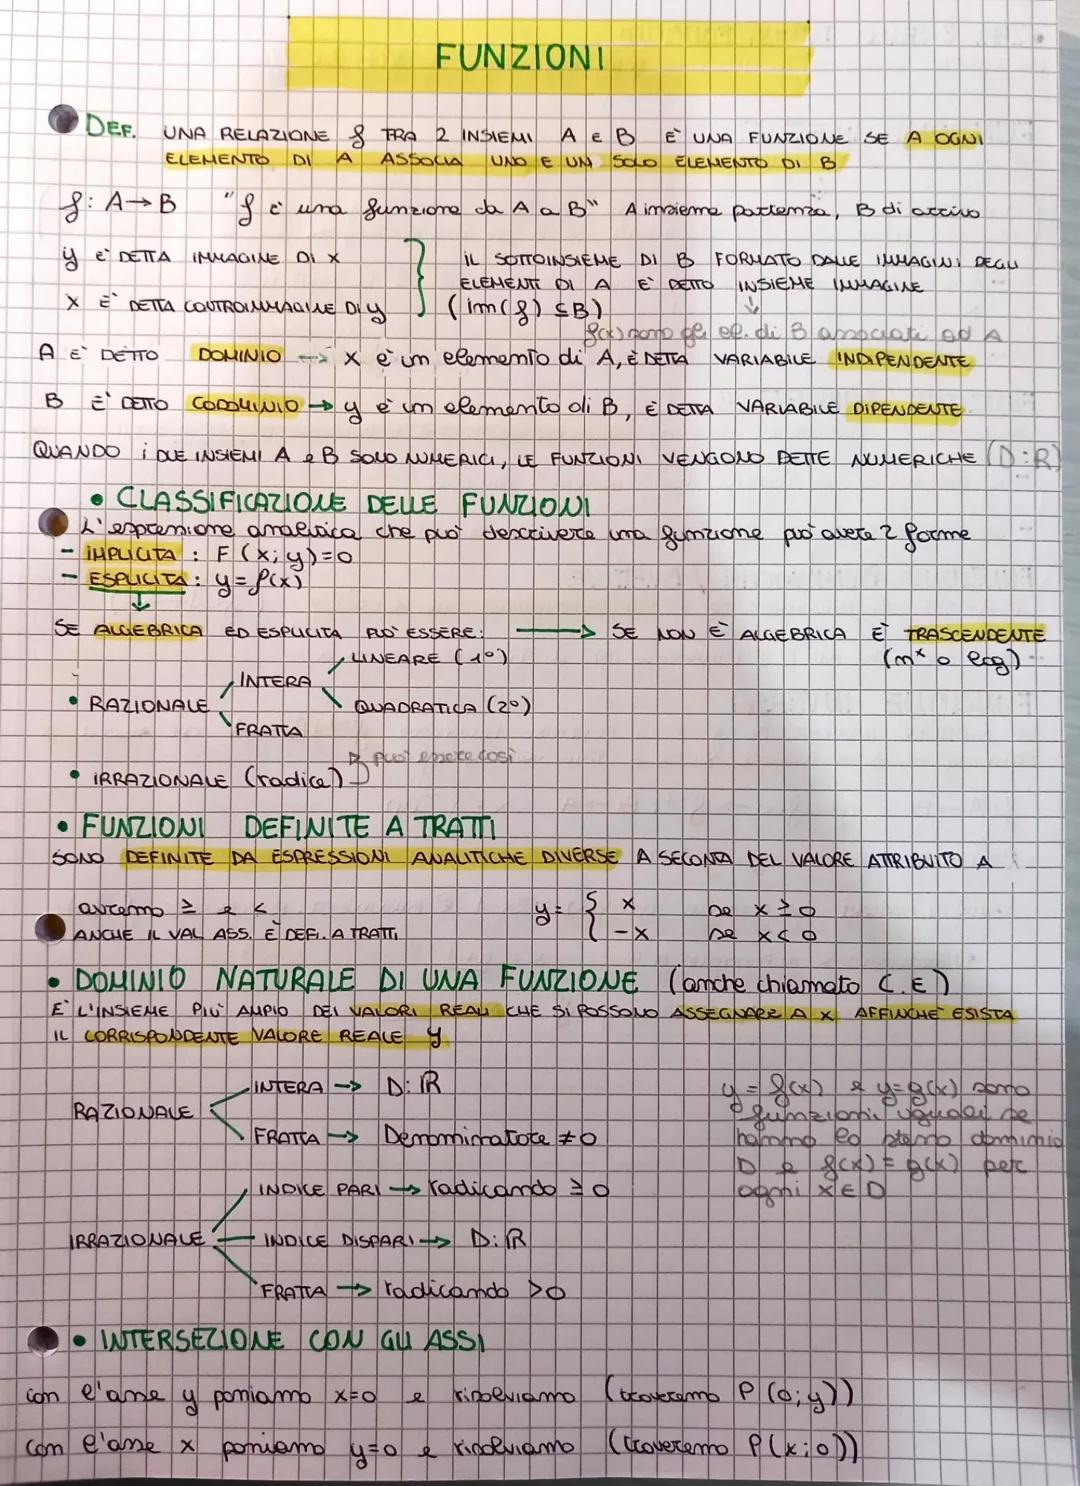 FUNZIONI
DEF. UNA RELAZIONE f TRA 2 INSIEMI A e B E' UNA FUNZIONE SE A OGNI
ELEMENTO DI A ASSOCIA UNO E UN SOLO ELEMENTO DI B
f: A→B "f è una funzione da A a B" A insieme partenza, B di arrivo
y E' DETTA IMMAGINE DI X
X E' DETTA CONTROIMMAGINE DI y
IL SOTTOINSIEME DI B FORMATO DALLE IMMAGINI DEGLI
ELEMENTI DI A E' DETTO INSIEME IMMAGINE
(im(f) ⊆B)
f(x) sono gli el. di B associati ad A
A E' DETTO DOMINIO → X è un elemento di A, È DETTA VARIABILE INDIPENDENTE
B E' DETTO CODOMINIO → y è un elemento di B, È DETTA VARIABILE DIPENDENTE
QUANDO i DUE INSIEMI A e B SONO NUMERICI, LE FUNZIONI VENGONO DETTE NUMERICHE (D:R)
• CLASSIFICAZIONE DELLE FUNZIONI
L'espressione analitica che può descrivere una funzione può avere 2 forme
- IMPLICITA : F(x;y)=0
- ESPLICITA : y=f(x)
SE ALGEBRICA ED ESPLICITA PUO' ESSERE: → SE NON E' ALGEBRICA E' TRASCENDENTE
(nˣ o log)
LINEARE (1°)
INTERA
• RAZIONALE QUADRATICA (2°)
FRATTA
può essere così
• IRRAZIONALE (radice)
• FUNZIONI DEFINITE A TRATTI
SONO DEFINITE DA ESPRESSIONI ANALITICHE DIVERSE A SECONDA DEL VALORE ATTRIBUITO A
avremo ≥ e <
ANCHE IL VAL ASS. È DEF. A TRATTI
y= { x se x≥0
-x se x<0
• DOMINIO NATURALE DI UNA FUNZIONE (anche chiamato C.E)
E' L'INSIEME PIU' AMPIO DEI VALORI REALI CHE SI POSSONO ASSEGNARE A X AFFINCHE' ESISTA
IL CORRISPONDENTE VALORE REALE y
INTERA → D:ℝ
RAZIONALE
FRATTA → Denominatore ≠0
y=f(x) e y=g(x) sono
funzioni uguali se
hanno lo stesso dominio
D e f(x)=g(x) per
ogni x∈D
INDICE PARI → radicando ≥0
IRRAZIONALE INDICE DISPARI → D:ℝ
FRATTA → radicando >0
• INTERSEZIONE CON GLI ASSI
con l'asse y poniamo x=0 e risolviamo (troveremo P(0;y))
con l'asse x poniamo y=0 e risolviamo (troveremo P(x;0))